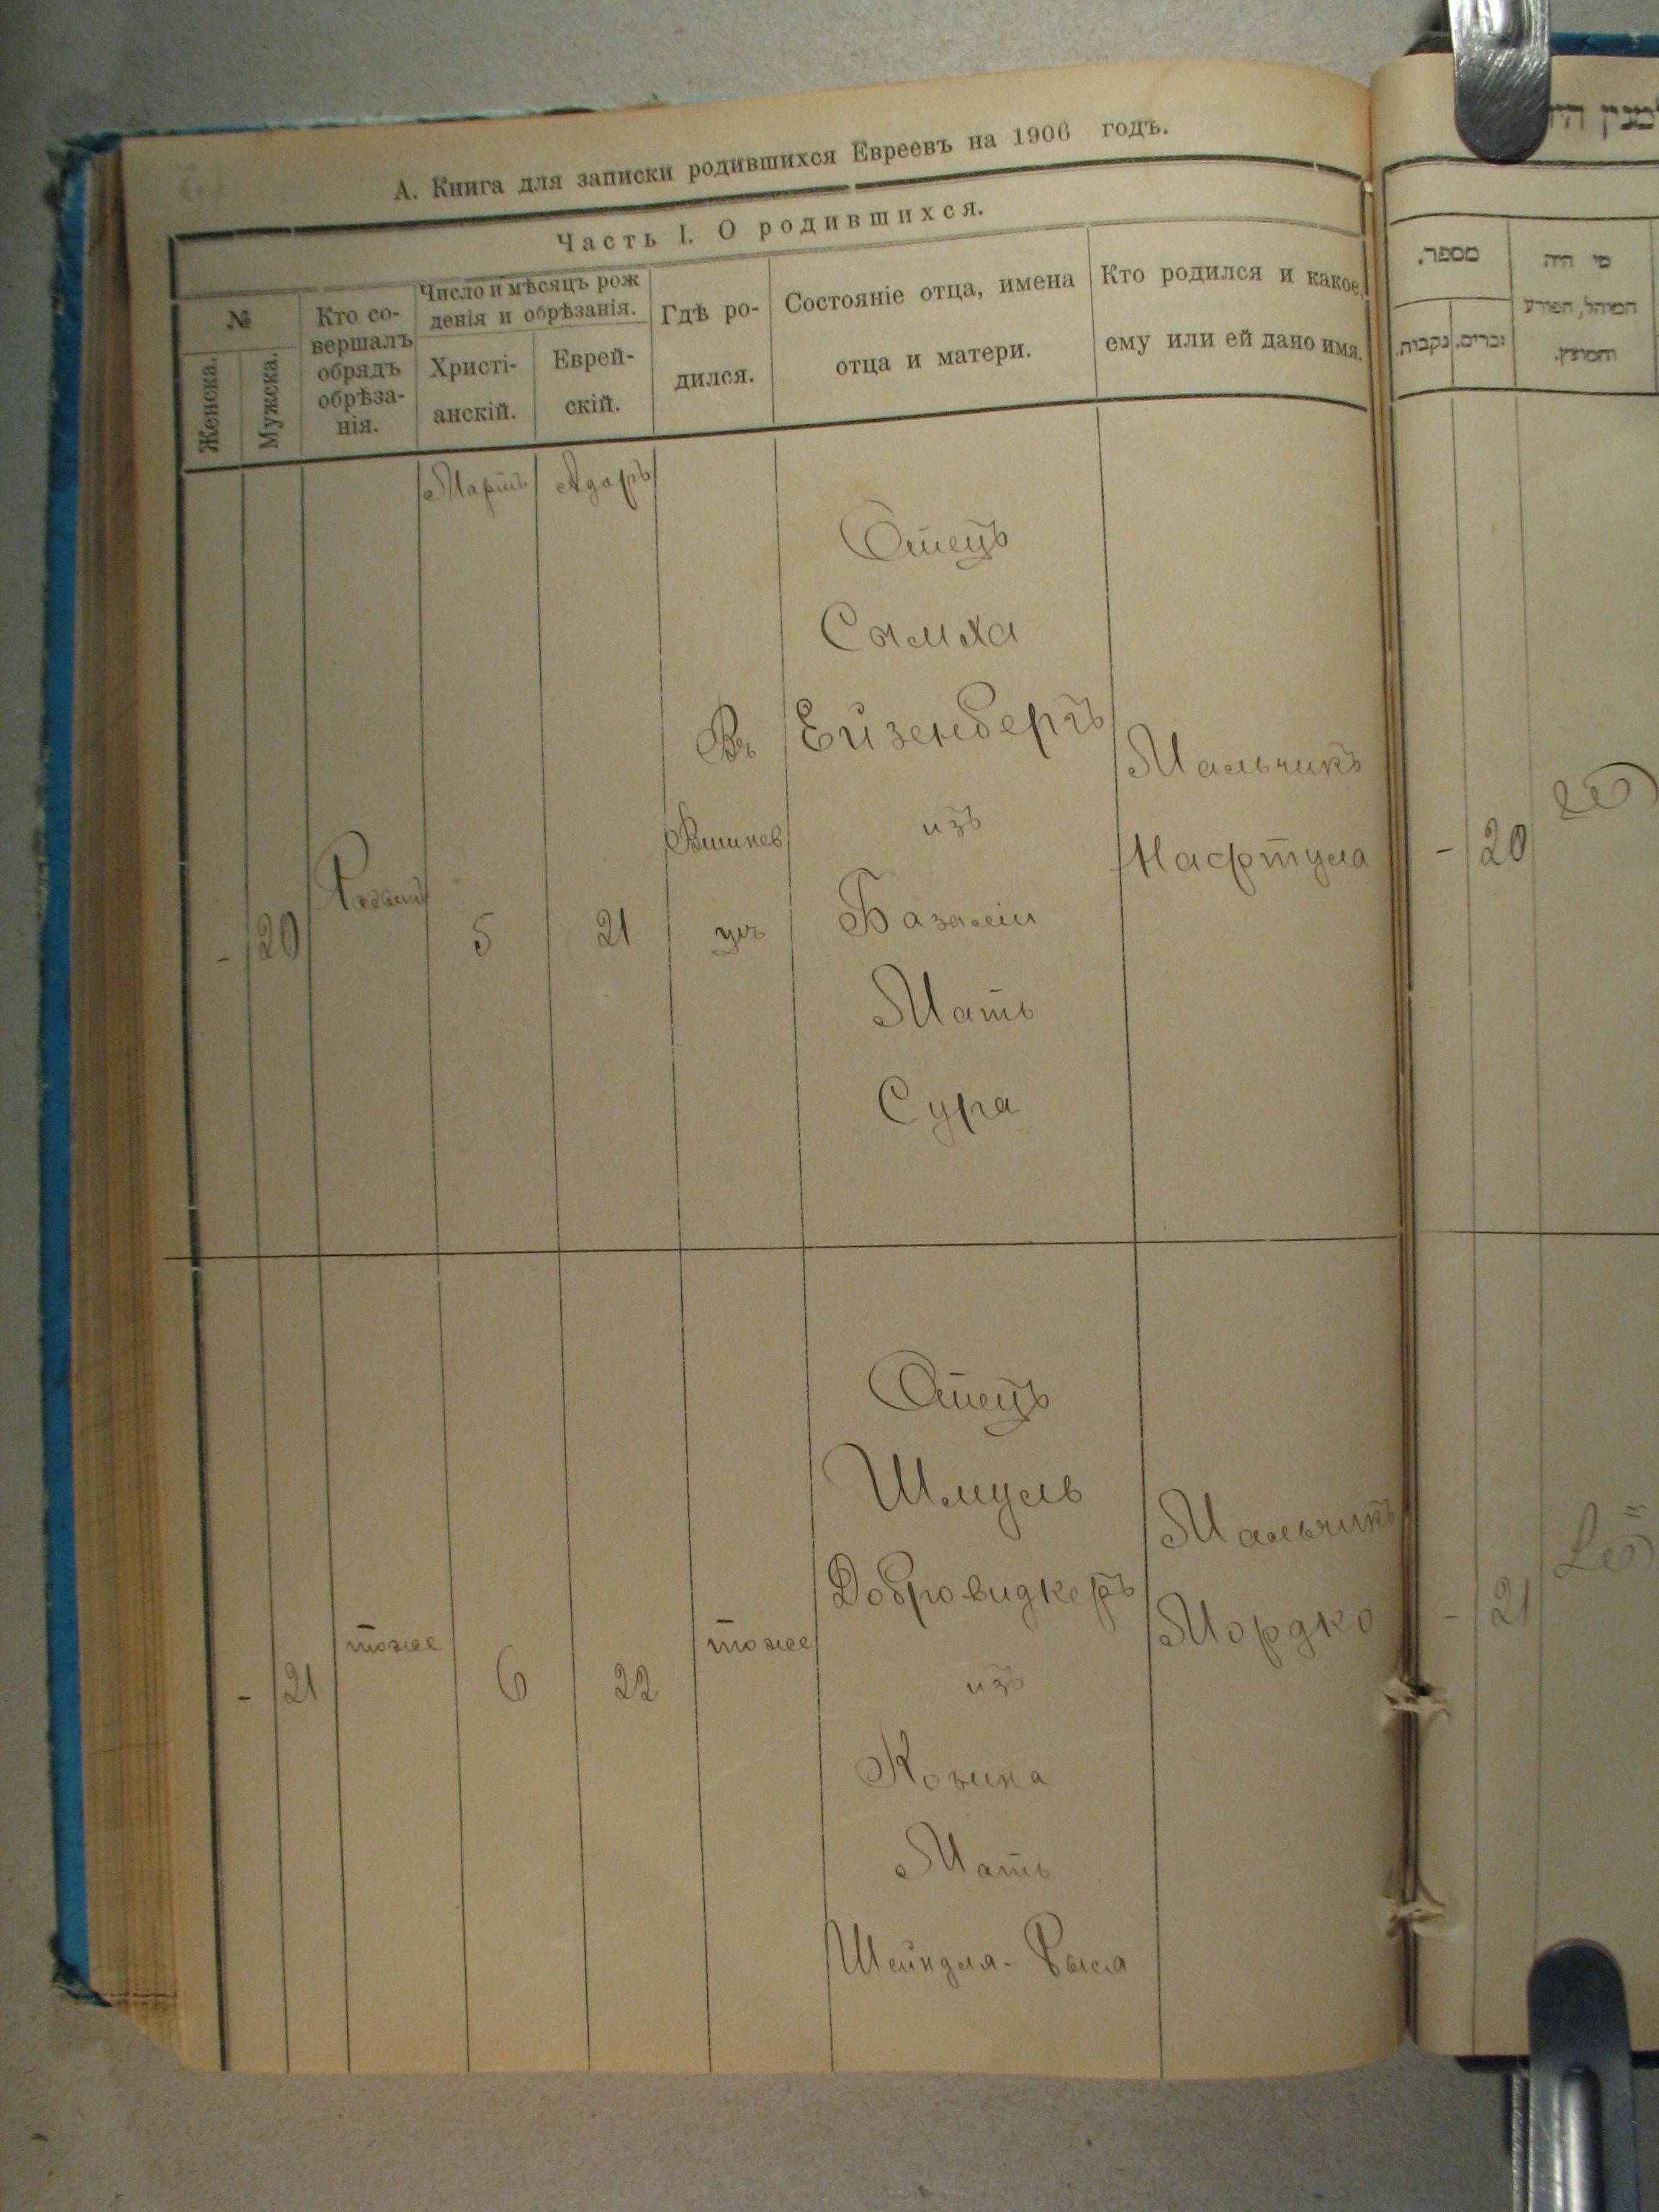 А. Книга для записки родившихся Евреевъ на 1906 годъ.
Часть I. О родившихся.
№
Женска.
Мужска.
Кто со-
вершалъ
обрядъ
обрѣза-
нія.
Число и мѣсяцъ рож
денія и обрѣзанія.
Христі-
анскій.
Еврей-
скій.
Гдѣ ро-
дился.
Состояніе отца, имена
отца и матери.
Кто родился и какое,
ему или ей дано имя.
Мартъ
Адаръ
-
20
5
21
Въ
Вишнев
цѣ
Отецъ
Сымха
Ейзенбергъ
изъ
Базаліи
Мать
Сура
Мальчикъ
Нафтула
-
21
тоже
6
22
тоже
Отецъ
Шмуль
Добровидкеръ
изъ
Козина
Мать
Шейндля-Рыся
Мальчикъ
Мордко
מספר.
נקבות.
זכרים.
מי היה
המוהל, הפורע
והמוצץ.
-
20
-
21